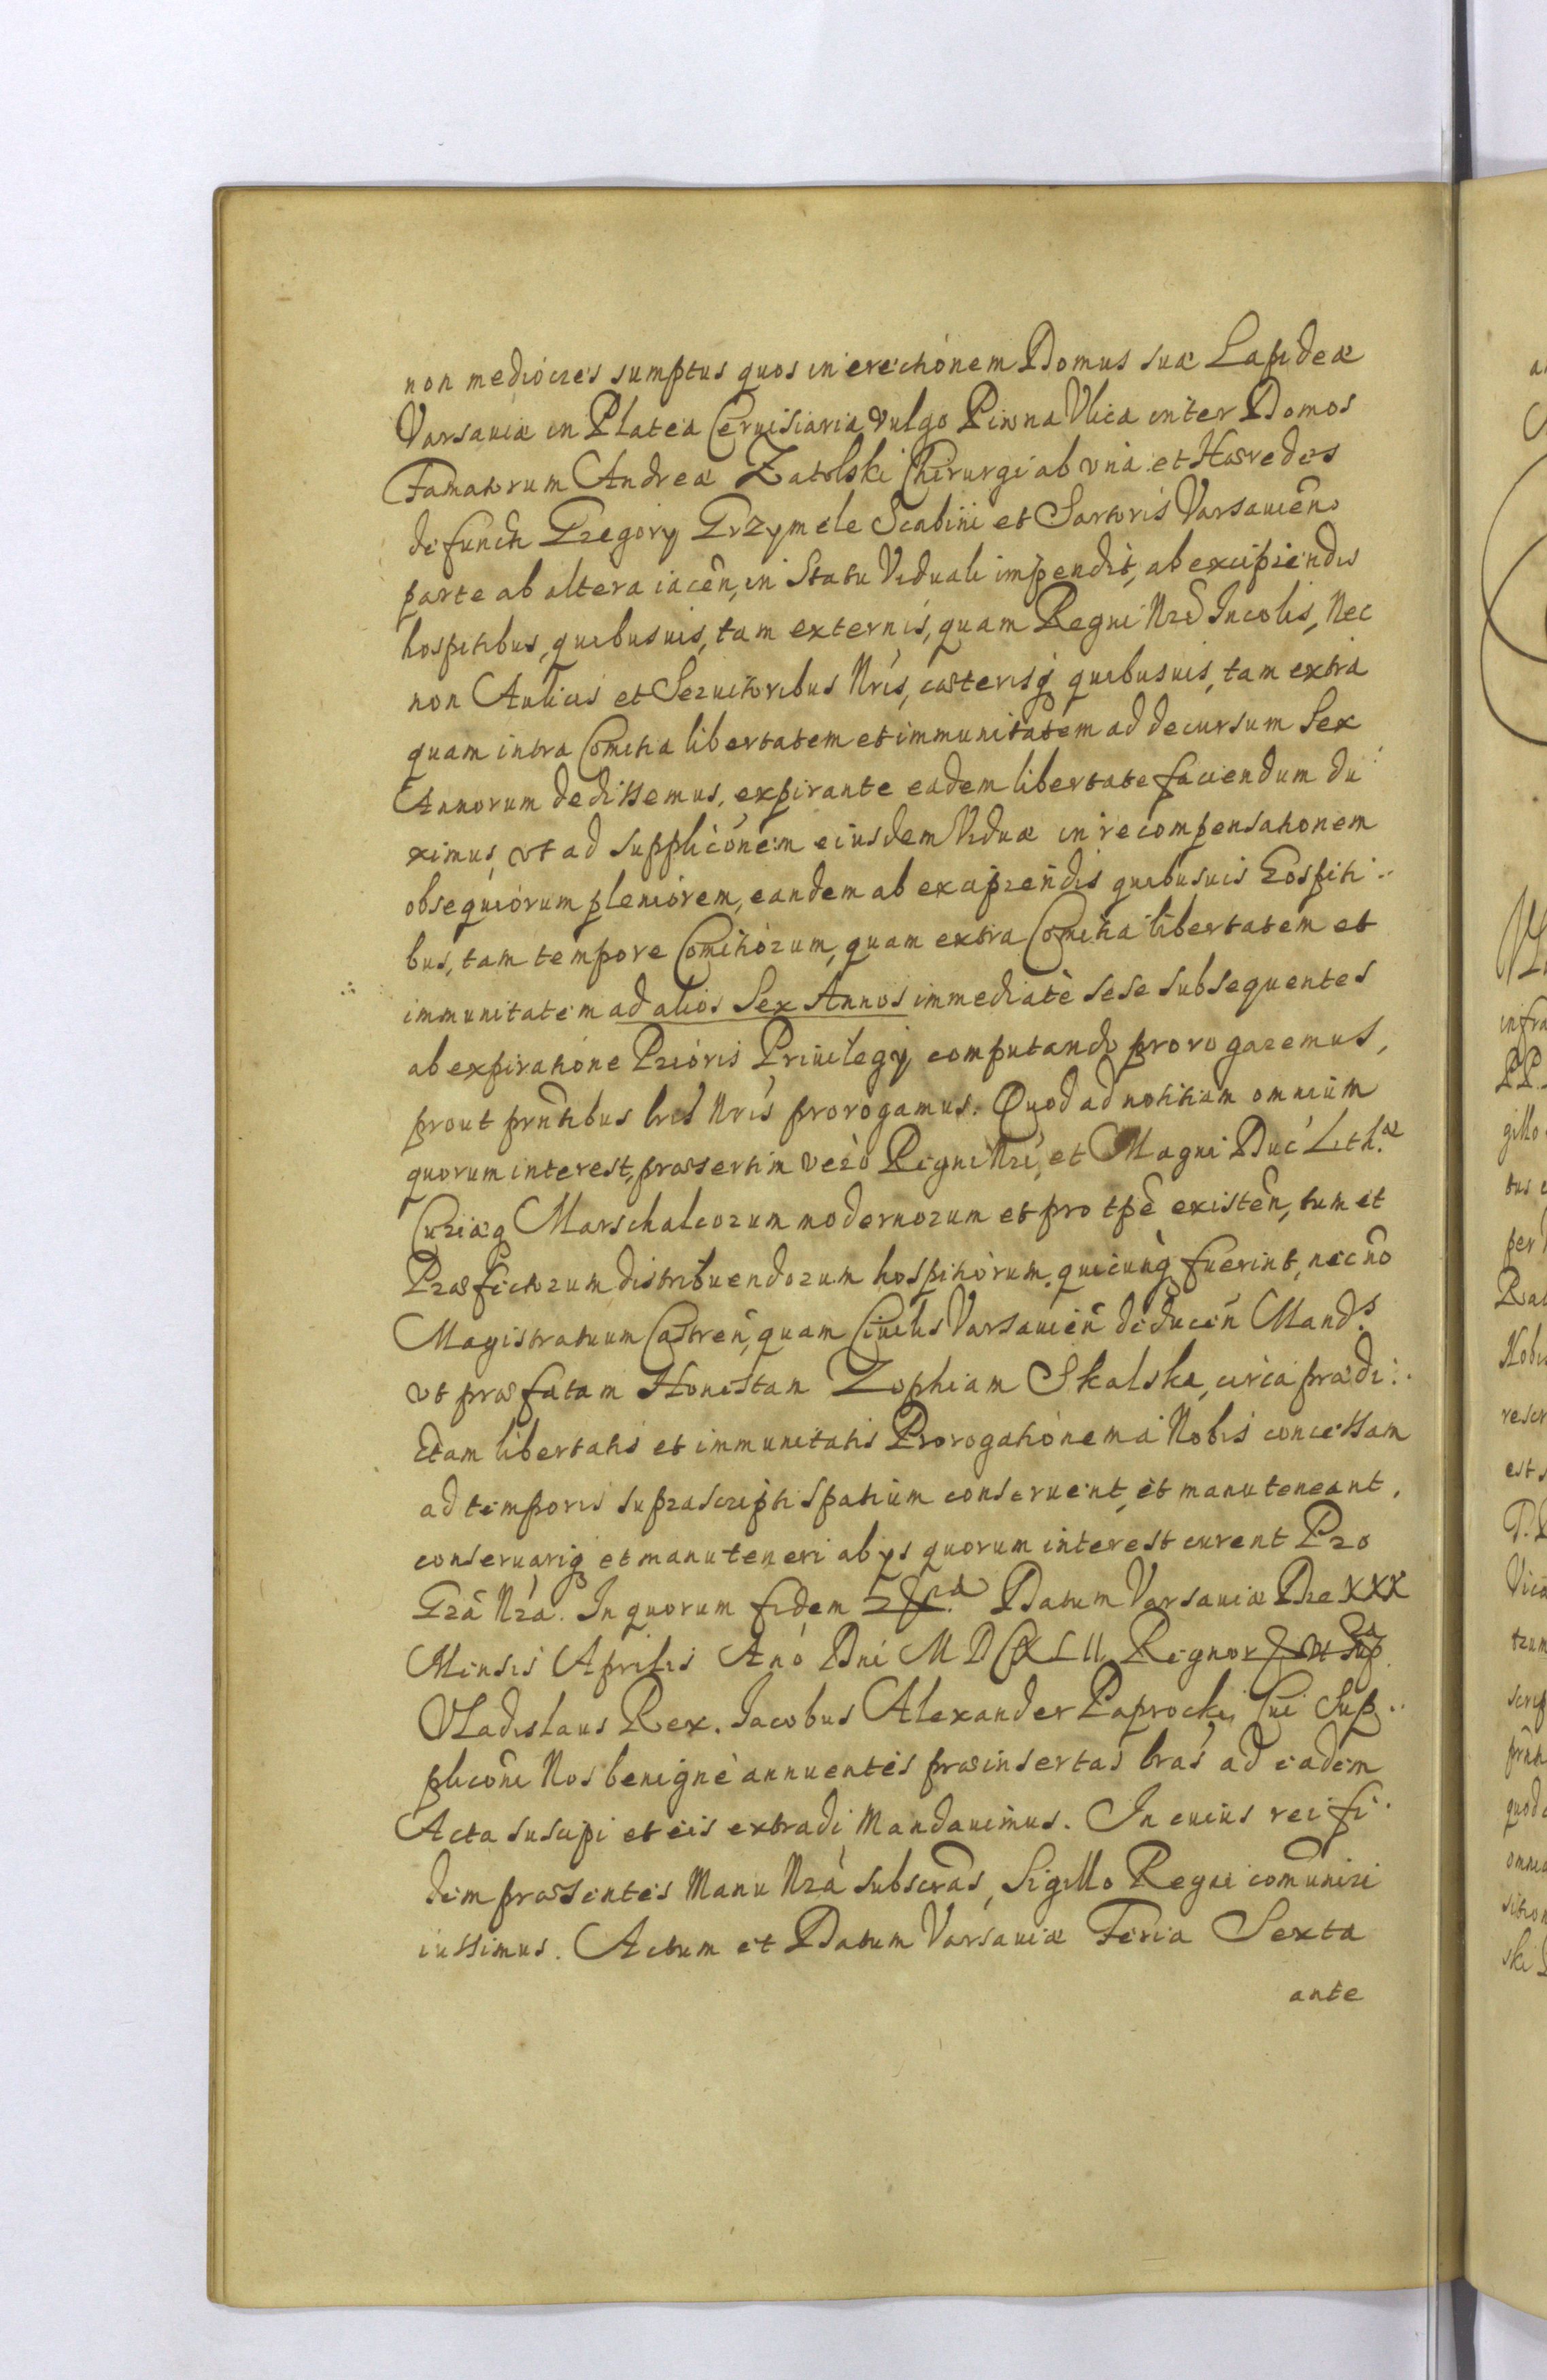 non mediocres sumptus quos in erectionem Domus suæ Lapideæ
Varsaviæ in Platea Cervisiaria vulgo Piwna Vlica inter Domos
Famatorum Andreæ Zatolski Chirurgi ab vna et Hæredes
defuncti Gregory Grzymele Scabini et Sartoris Varsavien̄.
parte ab altera iacen̄, in Statu Viduali impendit, ab excipiendis
hospitibus, quibusuis, tam externis, quam Regni Nrĩ Incolis, Nec
non Aulicis et Seruitoribus Nrĩs, cæterisq quibusuis, tam extra
quam intra Comitia libertatem et immunitatem ad decursum Sex
Annorum dedissemus, expirante eadem libertate faciendum du:
ximus, vt ad supplicõnem eiusdem Viduæ in recompensationem
obsequiorum pleniorem, eandem ab excipiendis quibusuis Hospiti:
bus, tam tempore Comitiorum, quam extra Comitia libertatem et
immunitatem ad alios Sex Annos immediatè sese subsequentes
ab expiratione Prioris Priuilegy computando prorogaremus,
prout prñtibus lrĩs Nrĩs prorogamus. Quod ad notitiam omnium
quorum interest, præsertim verò Regni Nrĩ, et Magni Duc Lith.æ
Curiæq Marschalcorum modernorum et pro tpẽ existen̄, tum et
Præfectorum distribuendorum hospitiorum, quicunq fuerint, necnõ
Magistratuum Castren̄, quam Ciuilis Varsavien̄ deducen̄ Mand.s
vt præfatam Honestam Zophiam Skalska, circa prædi:
ctam libertatis et immunitatis Prorogationem à Nobis concessam
ad temporis suprascripti spatium conseruent, et manuteneant,
conseruariq et manuteneri ab ys quorum interest curent Pro
Grã Nrã. In quorum fidem Datum Varsaviæ Die XXX
Mensis Aprilis Anõ Dnĩ MDCXLII, Regnor vt Sup
Vladislaus Rex. Jacobus Alexander Paprocki, Cui Sup:
plicõni Nos benignè annuentes præinsertas lrãs ad eadem
Acta suscipi et eis extradi Mandauimus. In cuius rei fi:
dem præsentes Manu Nrã subscrãs, Sigillo Regni comuniri
iussimus. Actum et Datum Varsaviæ Feria Sexta
ante